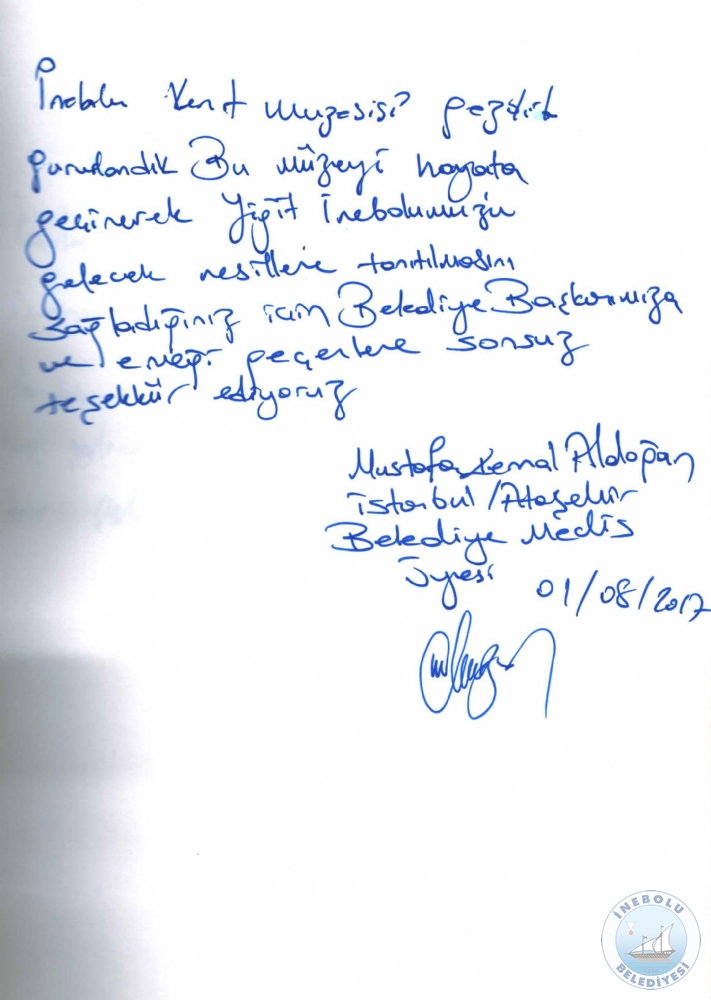 İnebolu Kent Müzesisi gezdik
gururlandık Bu müzeyi hayata
geçirerek Yiğit İnebolumuzu
gelecek nesillere tanıtılmasını
sağladığınız için Belediye Başkanımıza
ve emeği geçenlere sonsuz
teşekkür ediyoruz
Mustafa Kemal Aldoğan
İstanbul/Ataşehir
Belediye Meclis
Üyesi 01/08/2017
İNEBOLU
BELEDİYESİ